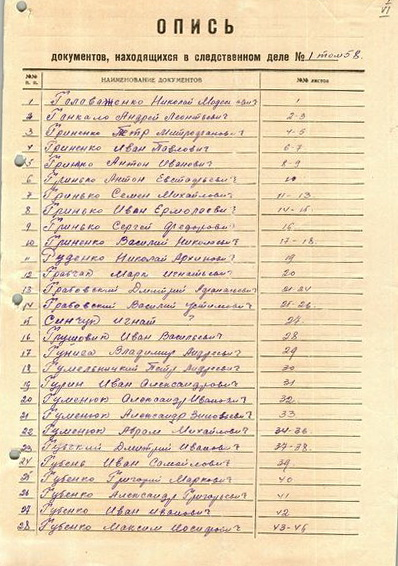 ОПИСЬ
документов, находящихся в следственном деле № 1 том 58.
№№ п. п. НАИМЕНОВАНИЕ ДОКУМЕНТОВ №№ листов
1 Николай 1
2 Ганкало Андрей Леонтьевич 2-3
3 Гриненко Петр Митрофанович 4-5
4 Гриненко Иван Павлович 6-7
5 Гринько Антон Иванович 8-9
6 Гринько Антон Евстафьевич 10
7 Гринько Семен Михайлович 11-13
8 Гринько Иван Ермолаевич 14-15
9 Гринько Сергей Федорович 16
10 Гриненко Василий Николаевич 17-18
11 Руденко Николай Архипович 19
12 Марк Игнатьевич 20
13 Грабовский Дмитрий
14 Грабовский Василий 25-26
15 Синчук Игнат 27
16 Грушович Иван Васильевич 28
17 Владимир Андреевич 29
18 Гумельницкий Петр Андреевич 30
19 Гурин Иван Александрович 31
20 Гуменюк Александр Иванович 32
21 Гуменюк Александр Зиновьевич 33
22 Гуменюк Абрам Михайлович 34-36
23 Губский Дмитрий Иванович 37-38
24 Иван Самойлович 39
25 Губенко Григорий Маркович 40
26 Губенко Александр Григорьевич 41
27 Губенко Иван Иванович 42
28 Губенко Максим Иосифович 43-45